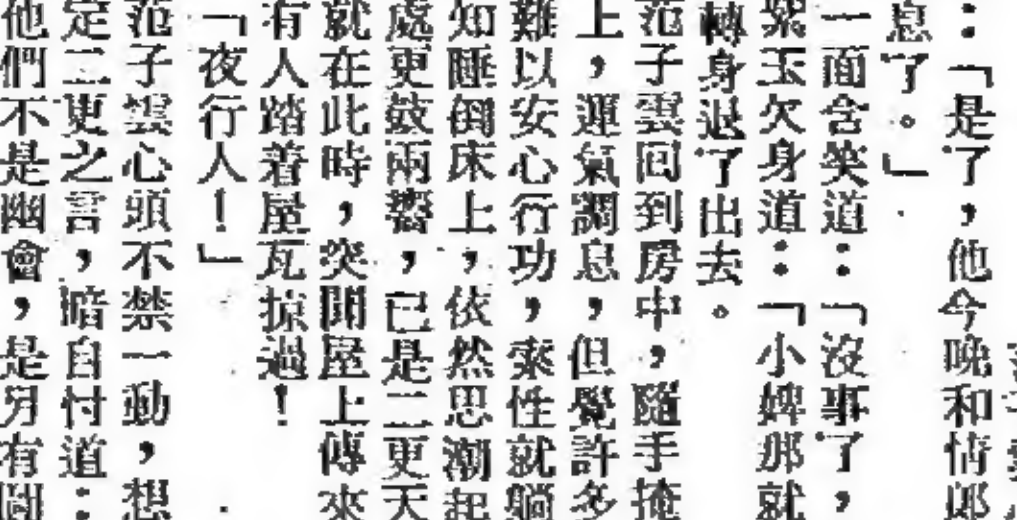 ：「是了，他今晚和情郎
息了。」
一面含笑道：「沒事了，
紫玉欠身道：「小婢那就
轉身退了出去。
范子雲回到房中，隨手掩
上，運氣調息，但覺許多
難以安心行功，索性就躺
知睡倒床上，依然思潮起
處更鼓兩響，已是二更天
就在此時，突聞屋上傳來
有人踏着屋瓦掠過！
「夜行人！」
范子雲心頭不禁一動，想
定二更之言，暗自忖道：
他們不是幽會，是另有圖